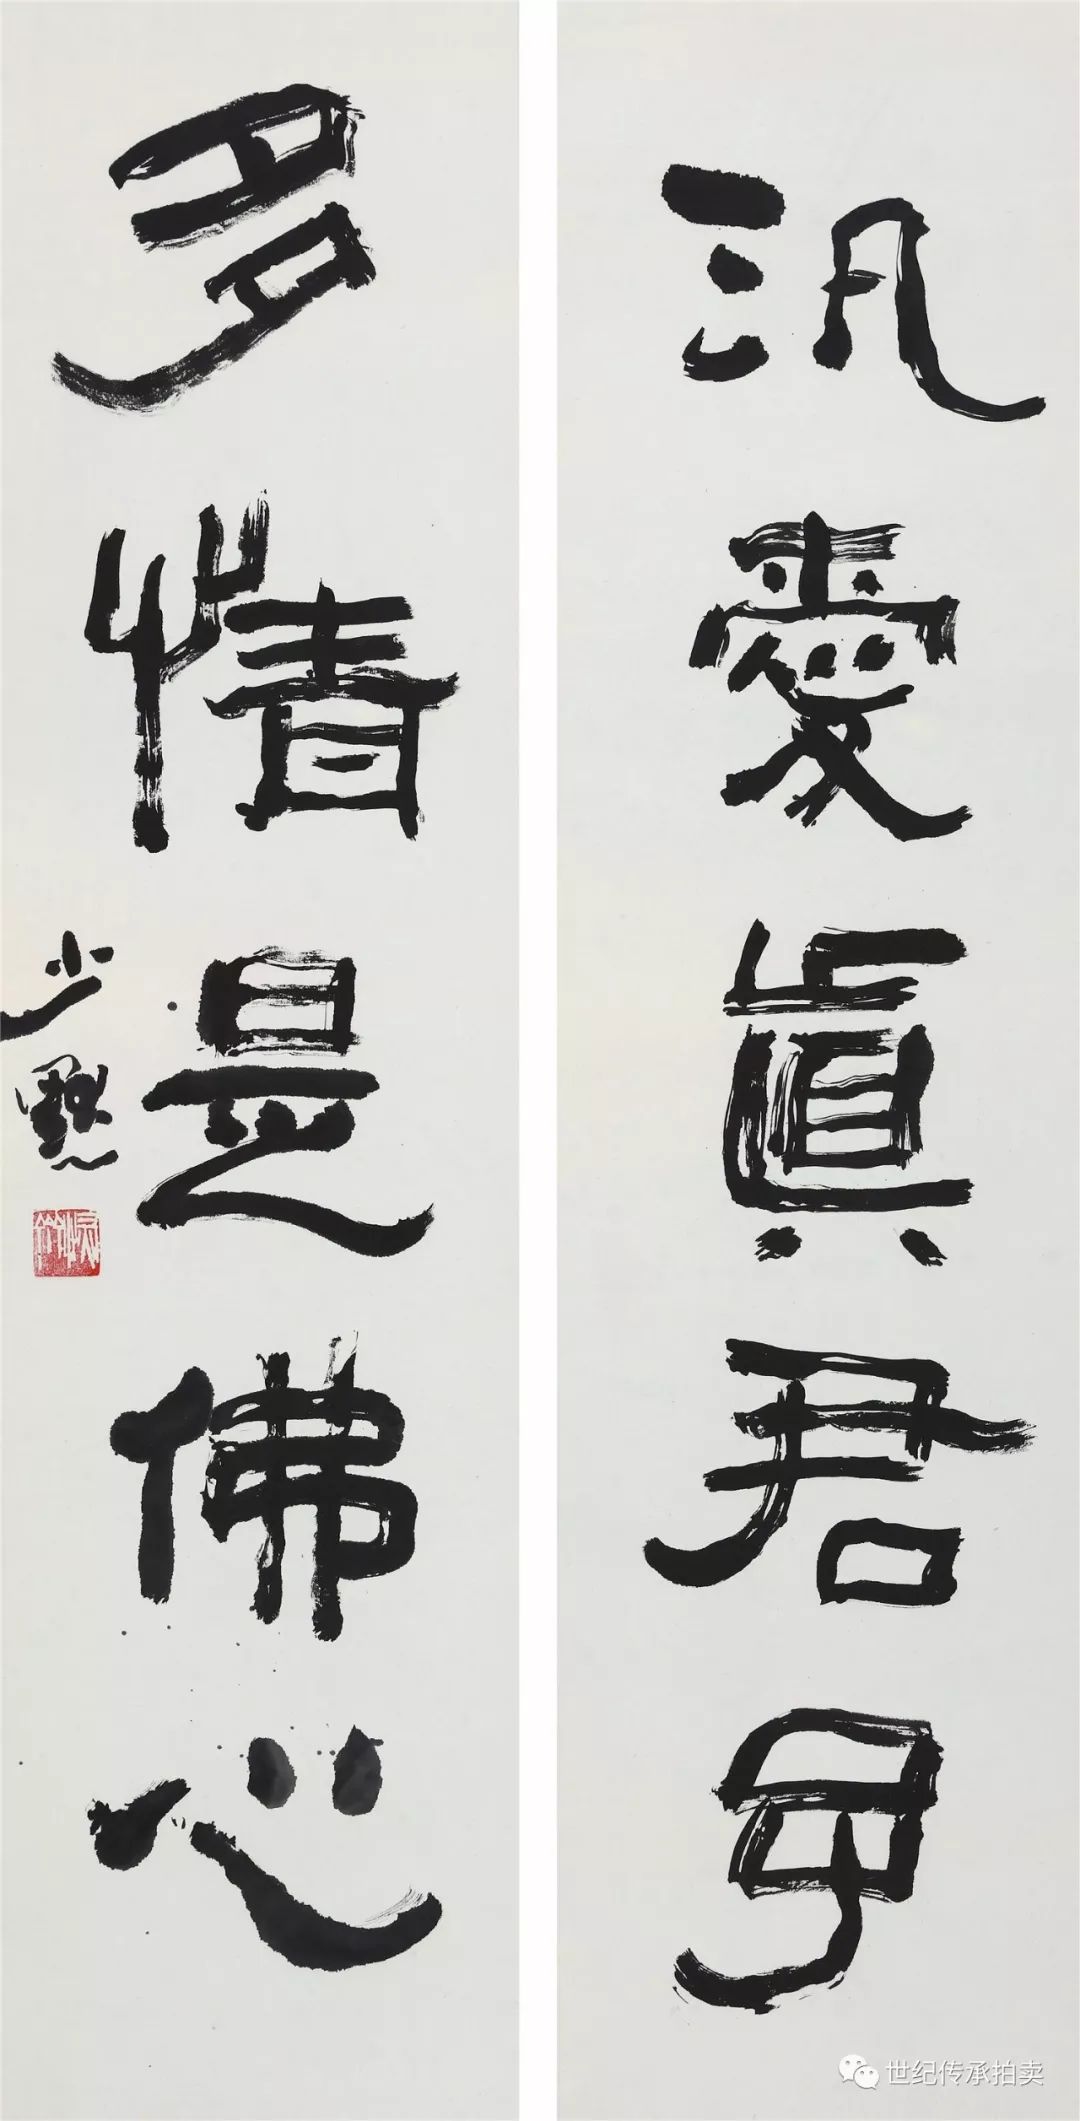 汎愛眞君子
多情是佛心
少默
世纪传承拍卖